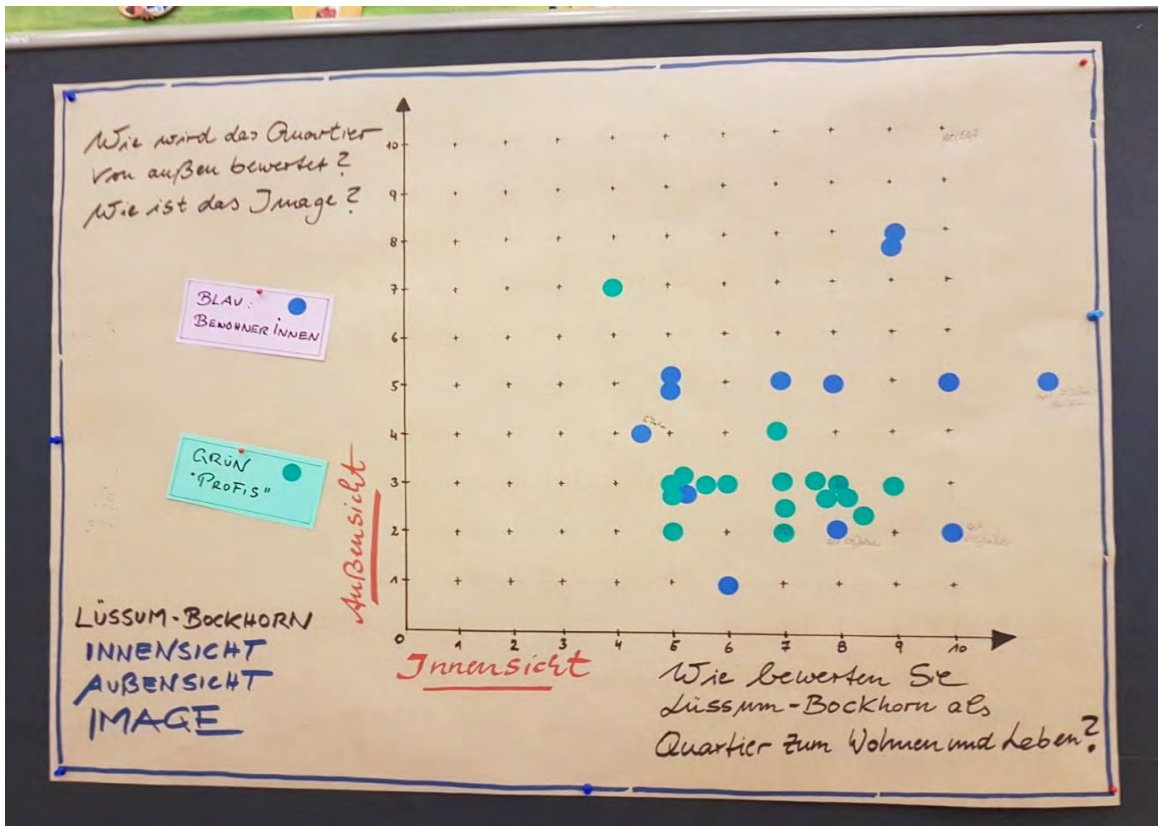 Wie wird das Quartier
von außen bewertet?
Wie ist das Image?
BLAU:
BEWOHNERINNEN
GRÜN
"PROFIS"
LÜSSUM-BOCKHORN
INNENSICHT
AUßENSICHT
IMAGE
Außensicht
10
9
8
7
6
5
4
3
2
1
0
1
2
3
4
5
6
7
8
9
10
Innensicht
Wie bewerten Sie
Lüssum-Bockhorn als
Quartier zum Wohnen und Leben?